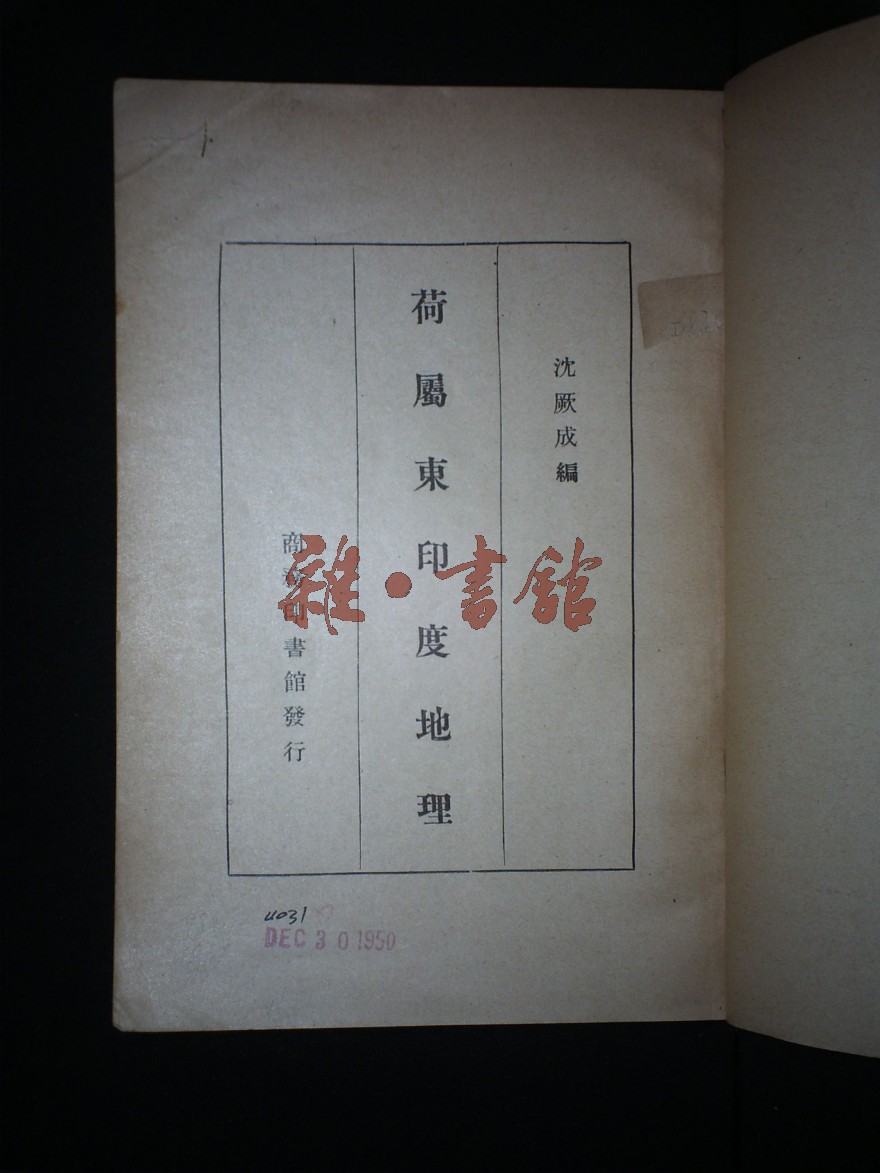 沈厥成編
荷屬東印度地理
商務印書館發行
雜·書館
4031
DEC 30 1950